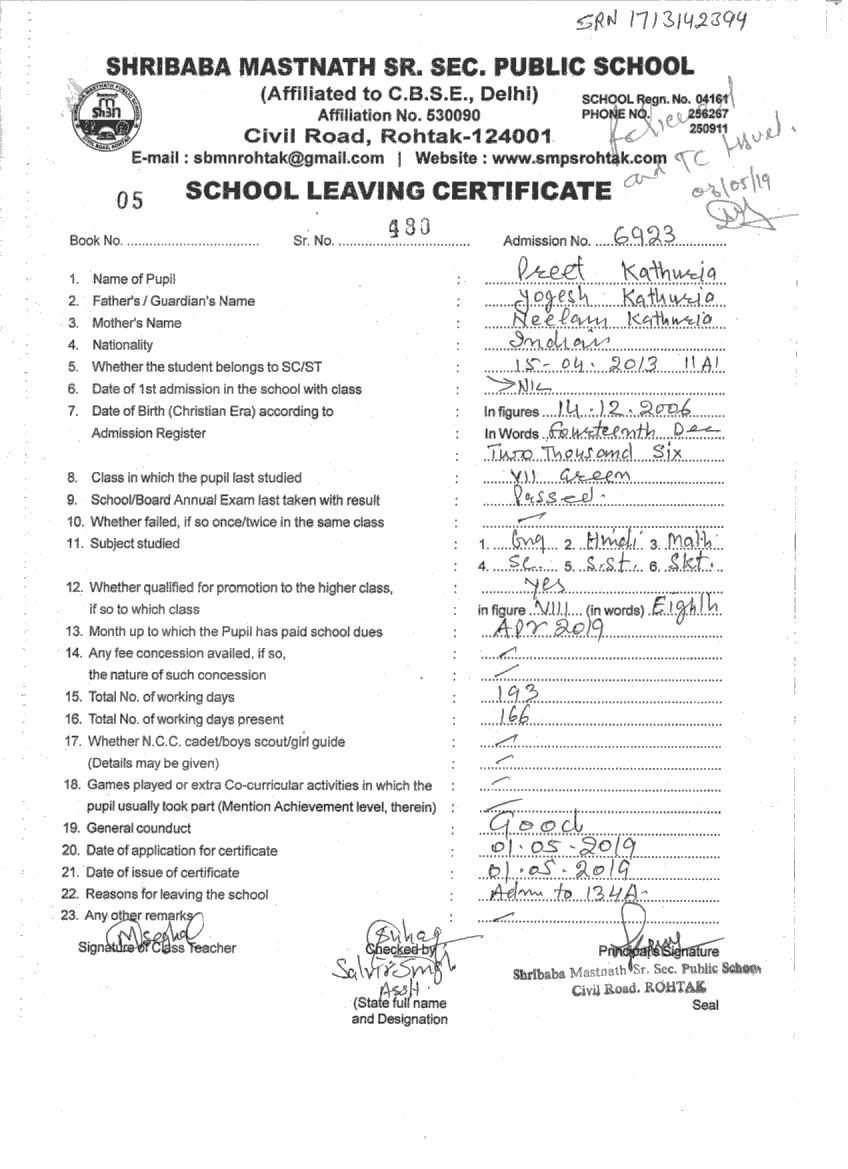 SRN 1713142394
SHRIBABA MASTNATH SR. SEC. PUBLIC SCHOOL
(Affiliated to C.B.S.E., Delhi)
Affiliation No. 530090
Civil Road, Rohtak-124001
SCHOOL Regn. No. 04161
PHONE NO. 256267
250911
E-mail : sbmnrohtak@gmail.com | Website : www.smpsrohtak.com
and TC Issued.
03/05/19
SCHOOL LEAVING CERTIFICATE
Book No. 05 Sr. No. 480 Admission No. 6923
1. Name of Pupil : Preet Kathuria
2. Father's / Guardian's Name : Yogesh Kathuria
3. Mother's Name : Neelam Kathuria
4. Nationality : Indian
5. Whether the student belongs to SC/ST : 15-04.2013 II A1
6. Date of 1st admission in the school with class : NIL
7. Date of Birth (Christian Era) according to : In figures 14.12.2006
Admission Register : In Words Fourteenth Dec
: Two Thousand Six
8. Class in which the pupil last studied : VII Green
9. School/Board Annual Exam last taken with result : Passed.
10. Whether failed, if so once/twice in the same class :
11. Subject studied : 1. Eng 2. Hindi 3. Math
: 4. Sc. 5. S.St. 6. Skt.
12. Whether qualified for promotion to the higher class, : Yes
if so to which class : in figure VIII (in words) Eighth
13. Month up to which the Pupil has paid school dues : Apr 2019
14. Any fee concession availed, if so, :
the nature of such concession :
15. Total No. of working days : 193
16. Total No. of working days present : 166
17. Whether N.C.C. cadet/boys scout/girl guide :
(Details may be given) :
18. Games played or extra Co-curricular activities in which the :
pupil usually took part (Mention Achievement level, therein) :
19. General counduct : Good
20. Date of application for certificate : 01.05-2019
21. Date of issue of certificate : 01.05-2019
22. Reasons for leaving the school : Adm to 134A
23. Any other remarks :
Signature of Class Teacher Checked by Principal's Signature
Shribaba Mastnath Sr. Sec. Public School
Civil Road. ROHTAK
(State full name Seal
and Designation